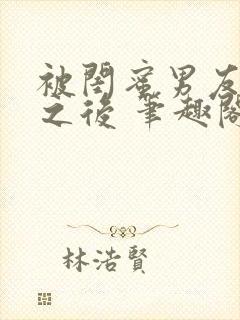 被閨蜜男友
之後 筆趣閣
林浩賢